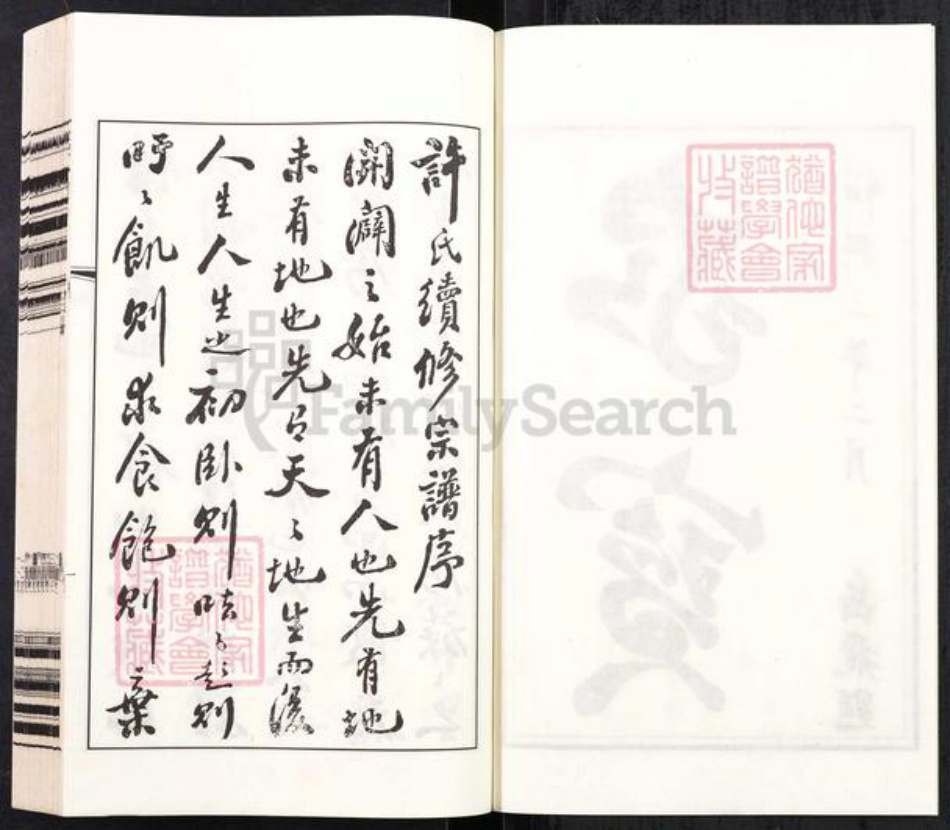 許氏續修宗譜序
開闢之始未有人也先有地
未有地也先有天天地生而後
人生人生之初卧則呿呿起則
吁吁飢則求食飽則棄
猶他家
譜學會
收藏
FamilySearch